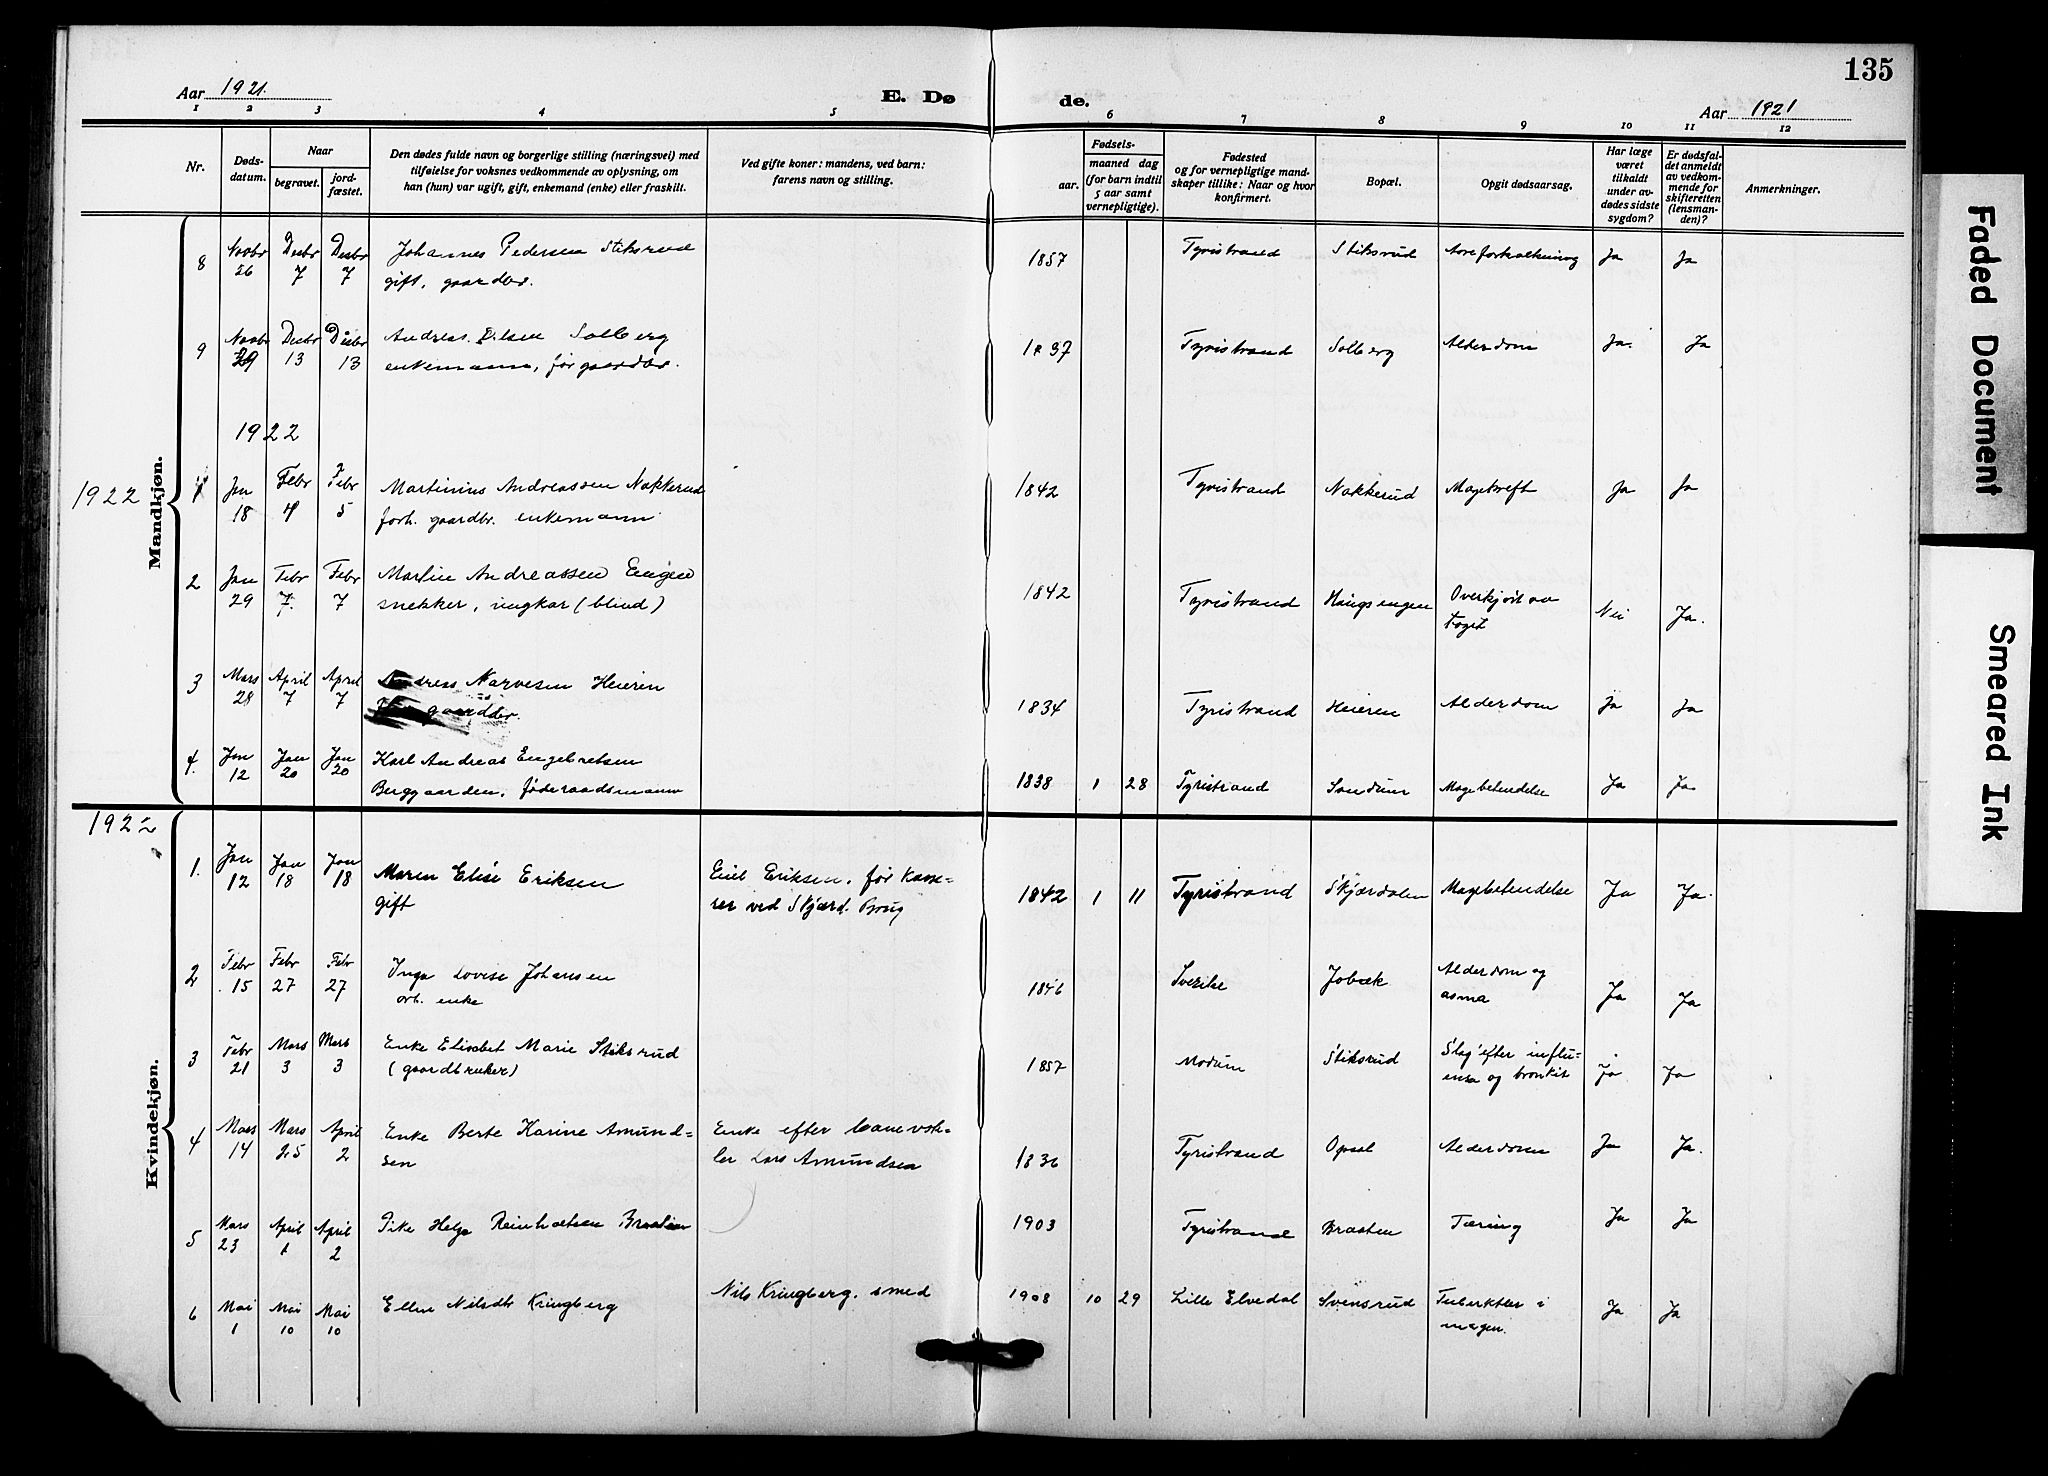 135
Aar 1921. E. Dø de. Aar 1921
1 2 3 4 5 6 7 8 9 10 11 12
Nr. Døds-datum. Naar begravet. jord-fæstet. Den dødes fulde navn og borgerlige stilling (næringsvei) med tilføielse for voksnes vedkommende av oplysning, om han (hun) var ugift, gift, enkemand (enke) eller fraskilt. Ved gifte koner: mandens, ved barn: farens navn og stilling. Fødsels- aar. maaned dag (for barn indtil 5 aar samt vernepligtige). Fødested og for vernepligtige mand-skaper tillike: Naar og hvor konfirmert. Bopæl. Opgit dødsaarsag. Har læge været tilkaldt under av-dødes sidste sygdom? Er dødsfal-det anmeldt av vedkom-mende for skifteretten (lensman-den)? Anmerkninger.
Mandkjøn.
8 Novbr 26 Desbr 7 Desbr 7 Johannes Pedersen Stiksrud 1857 Tyristrand Stiksrud Aareforkalkning Ja Ja
gift, gaardbr.
9 Novbr 29 Desbr 13 Desbr 13 Andreas Olsen Solberg 1837 Tyristrand Solberg Alderdom Ja. Ja
enkemann, før gaardbr.
1922
1922
1 Jan 18 Febr 4 Febr 5 Martinius Andreassen Nakkerud 1842 Tyristrand Nakkerud Magekreft Ja Ja
forh. gaardbr. enkemann
2 Jan 29 Febr 7. Febr 7 Martin Andreassen Engen 1842 Tyristrand Haugsengen Overkjørt av Nei Ja.
snekker, ungkar (blind) toget
3 Mars 28 April 7 April 7 Andreas Narvesen Heieren 1834 Tyristrand Heieren Alderdom Ja Ja
gaardbr.
4. Jan 12 Jan 20 Jan 20 Karl Andreas Engebretsen 1838 1 28 Tyristrand Sundum Magebetendelse Ja Ja
Berggaarden, føderaadsmann
1922
Kvindekjøn.
1. Jan 12 Jan 18 Jan 18 Maren Elise Eriksen Emil Eriksen, før kasse- 1842 1 11 Tyristrand Skjærdalen Magebetendelse Ja Ja.
gift rer ved Skjærd. Brug
2 Febr 15 Febr 27 Febr 27 Inga Lovise Johansen 1846 Sverike Jobæk Alderdom og Ja Ja
arb. enke asma
3 Febr 21 Mars 3 Mars 3 Enke Elisabet Marie Stiksrud 1857 Modum Stiksrud Slag efter influ- Ja Ja
(gaardbruker) ensa og bronkit
4 Mars 14 Mars 25 April 2 Enke Berte Karine Amund- Enke efter banevok- 1836 Tyristrand Opsal Alderdom Ja Ja.
sen ter Lars Amundsen
5 Mars 23 April 1 April 2 Pike Helga Reinholtsen Braaten 1903 Tyristrand Braaten Tæring Ja Ja
6 Mai 1 Mai 10 Mai 10 Ellen Nilsdtr Kringberg Nils Kringberg, smed 1908 10 29 Lille Elvedal Svensrud Tuberkler i Ja Ja
magen.
Faded Document
Smeared Ink